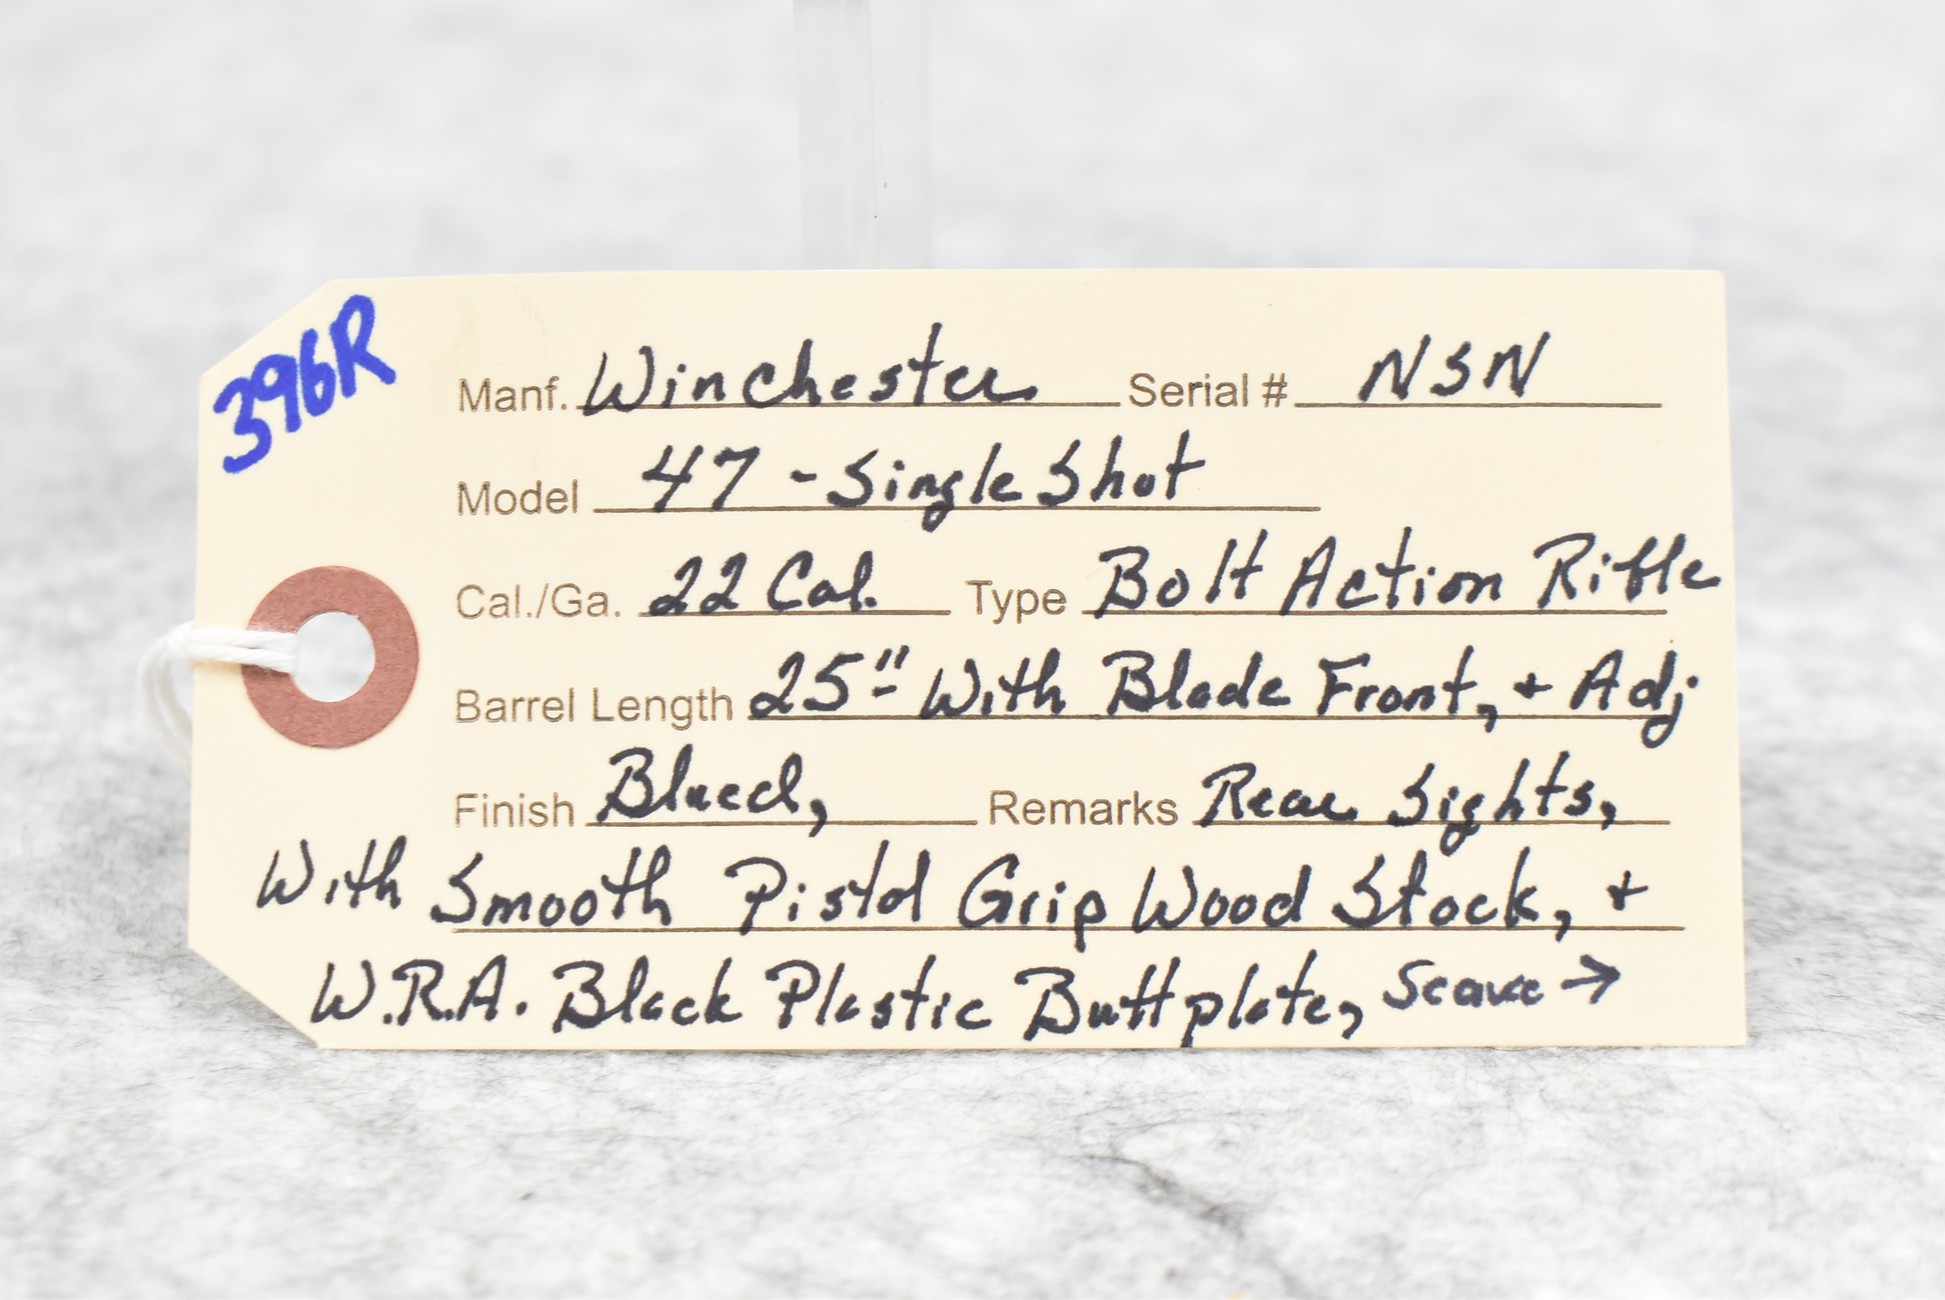 396R
Manf. Winchester Serial # NSN
Model 47 - Single Shot
Cal./Ga. 22 Cal. Type Bolt Action Rifle
Barrel Length 25" With Blade Front, + Adj
Finish Blued, Remarks Rear Sights,
With Smooth Pistol Grip Wood Stock, +
W.R.A. Black Plastic Buttplate, →